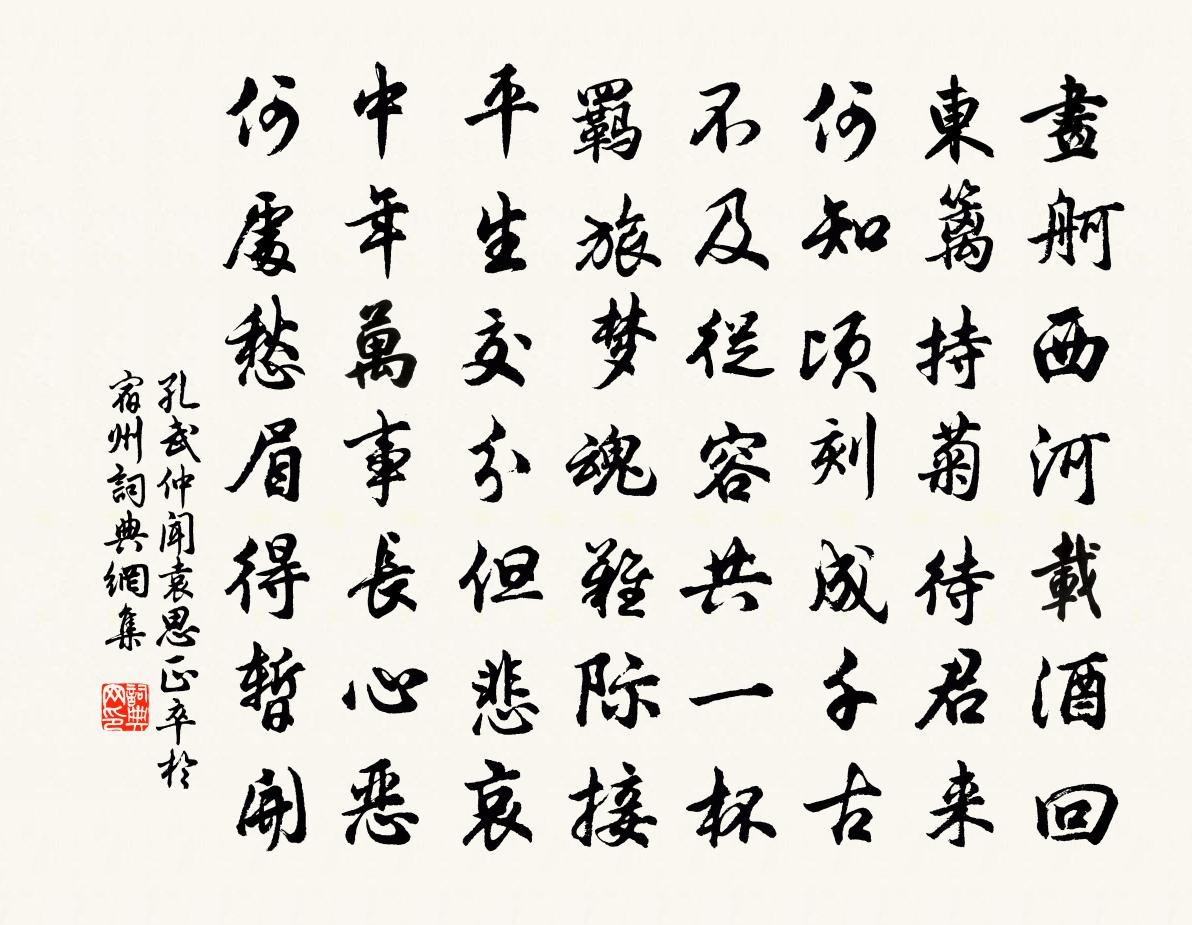 畫舸西河載酒回
東籬持菊待君来
何知頃刻成千古
不及從容共一杯
羈旅梦魂難際接
平生交分但悲哀
中年萬事長心惡
何處愁眉得暫開
孔武仲闻袁思正卒於
宿州詞典網集
詞典网印